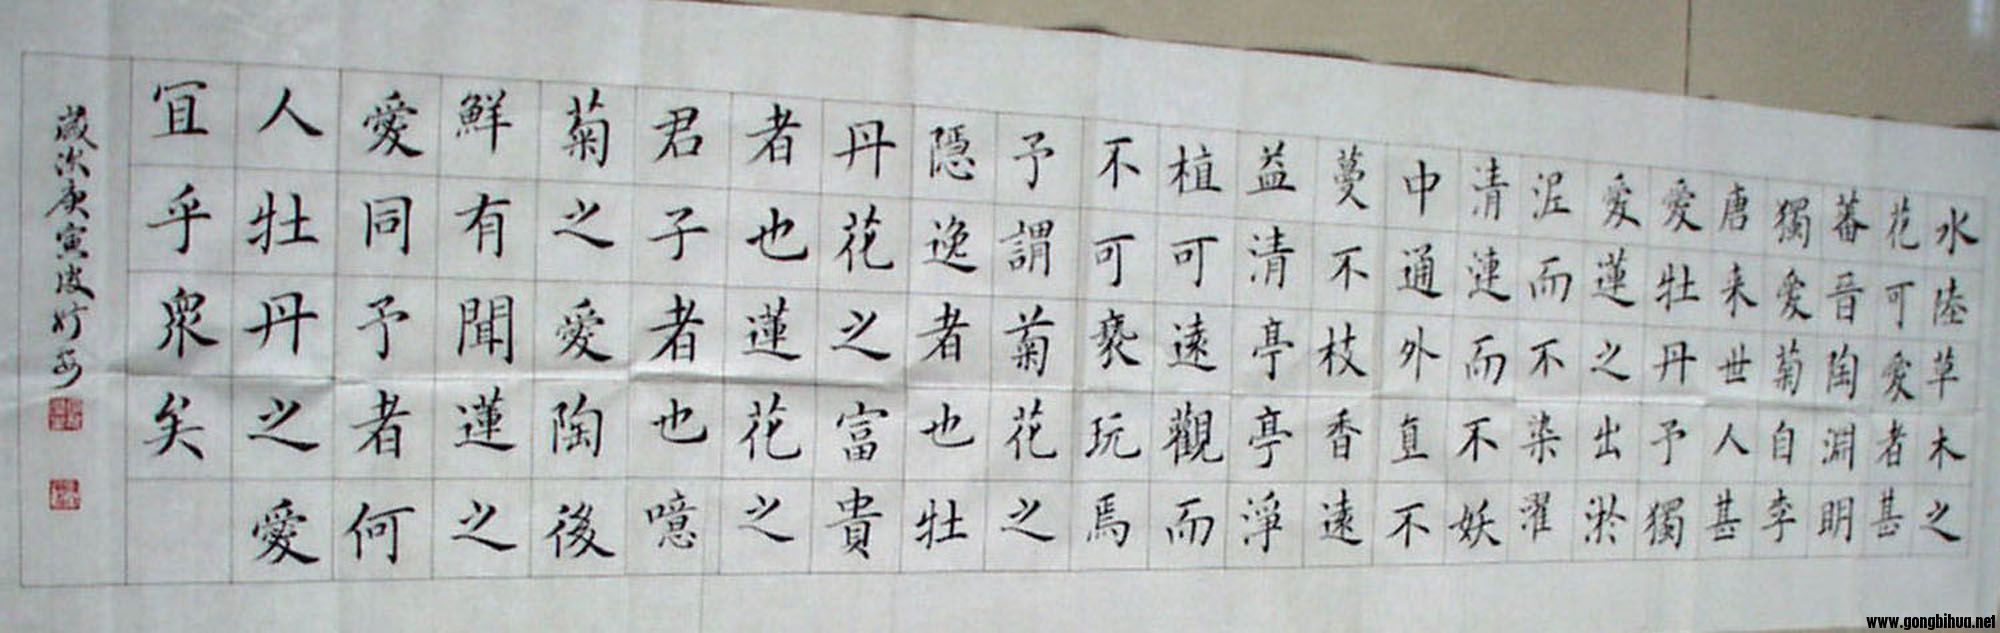 水陸草木之
花可愛者甚
蕃晉陶淵明
獨愛菊自李
唐来世人甚
愛牡丹予獨
愛蓮之出淤
泥而不染濯
清漣而不妖
中通外直不
蔓不枝香遠
益清亭亭淨
植可遠觀而
不可褻玩焉
予謂菊花之
隱逸者也牡
丹花之富貴
者也蓮花之
君子者也噫
菊之愛陶後
鮮有聞蓮之
愛同予者何
人牡丹之愛
冝乎眾矣
歲次庚寅
www.gongbihua.net